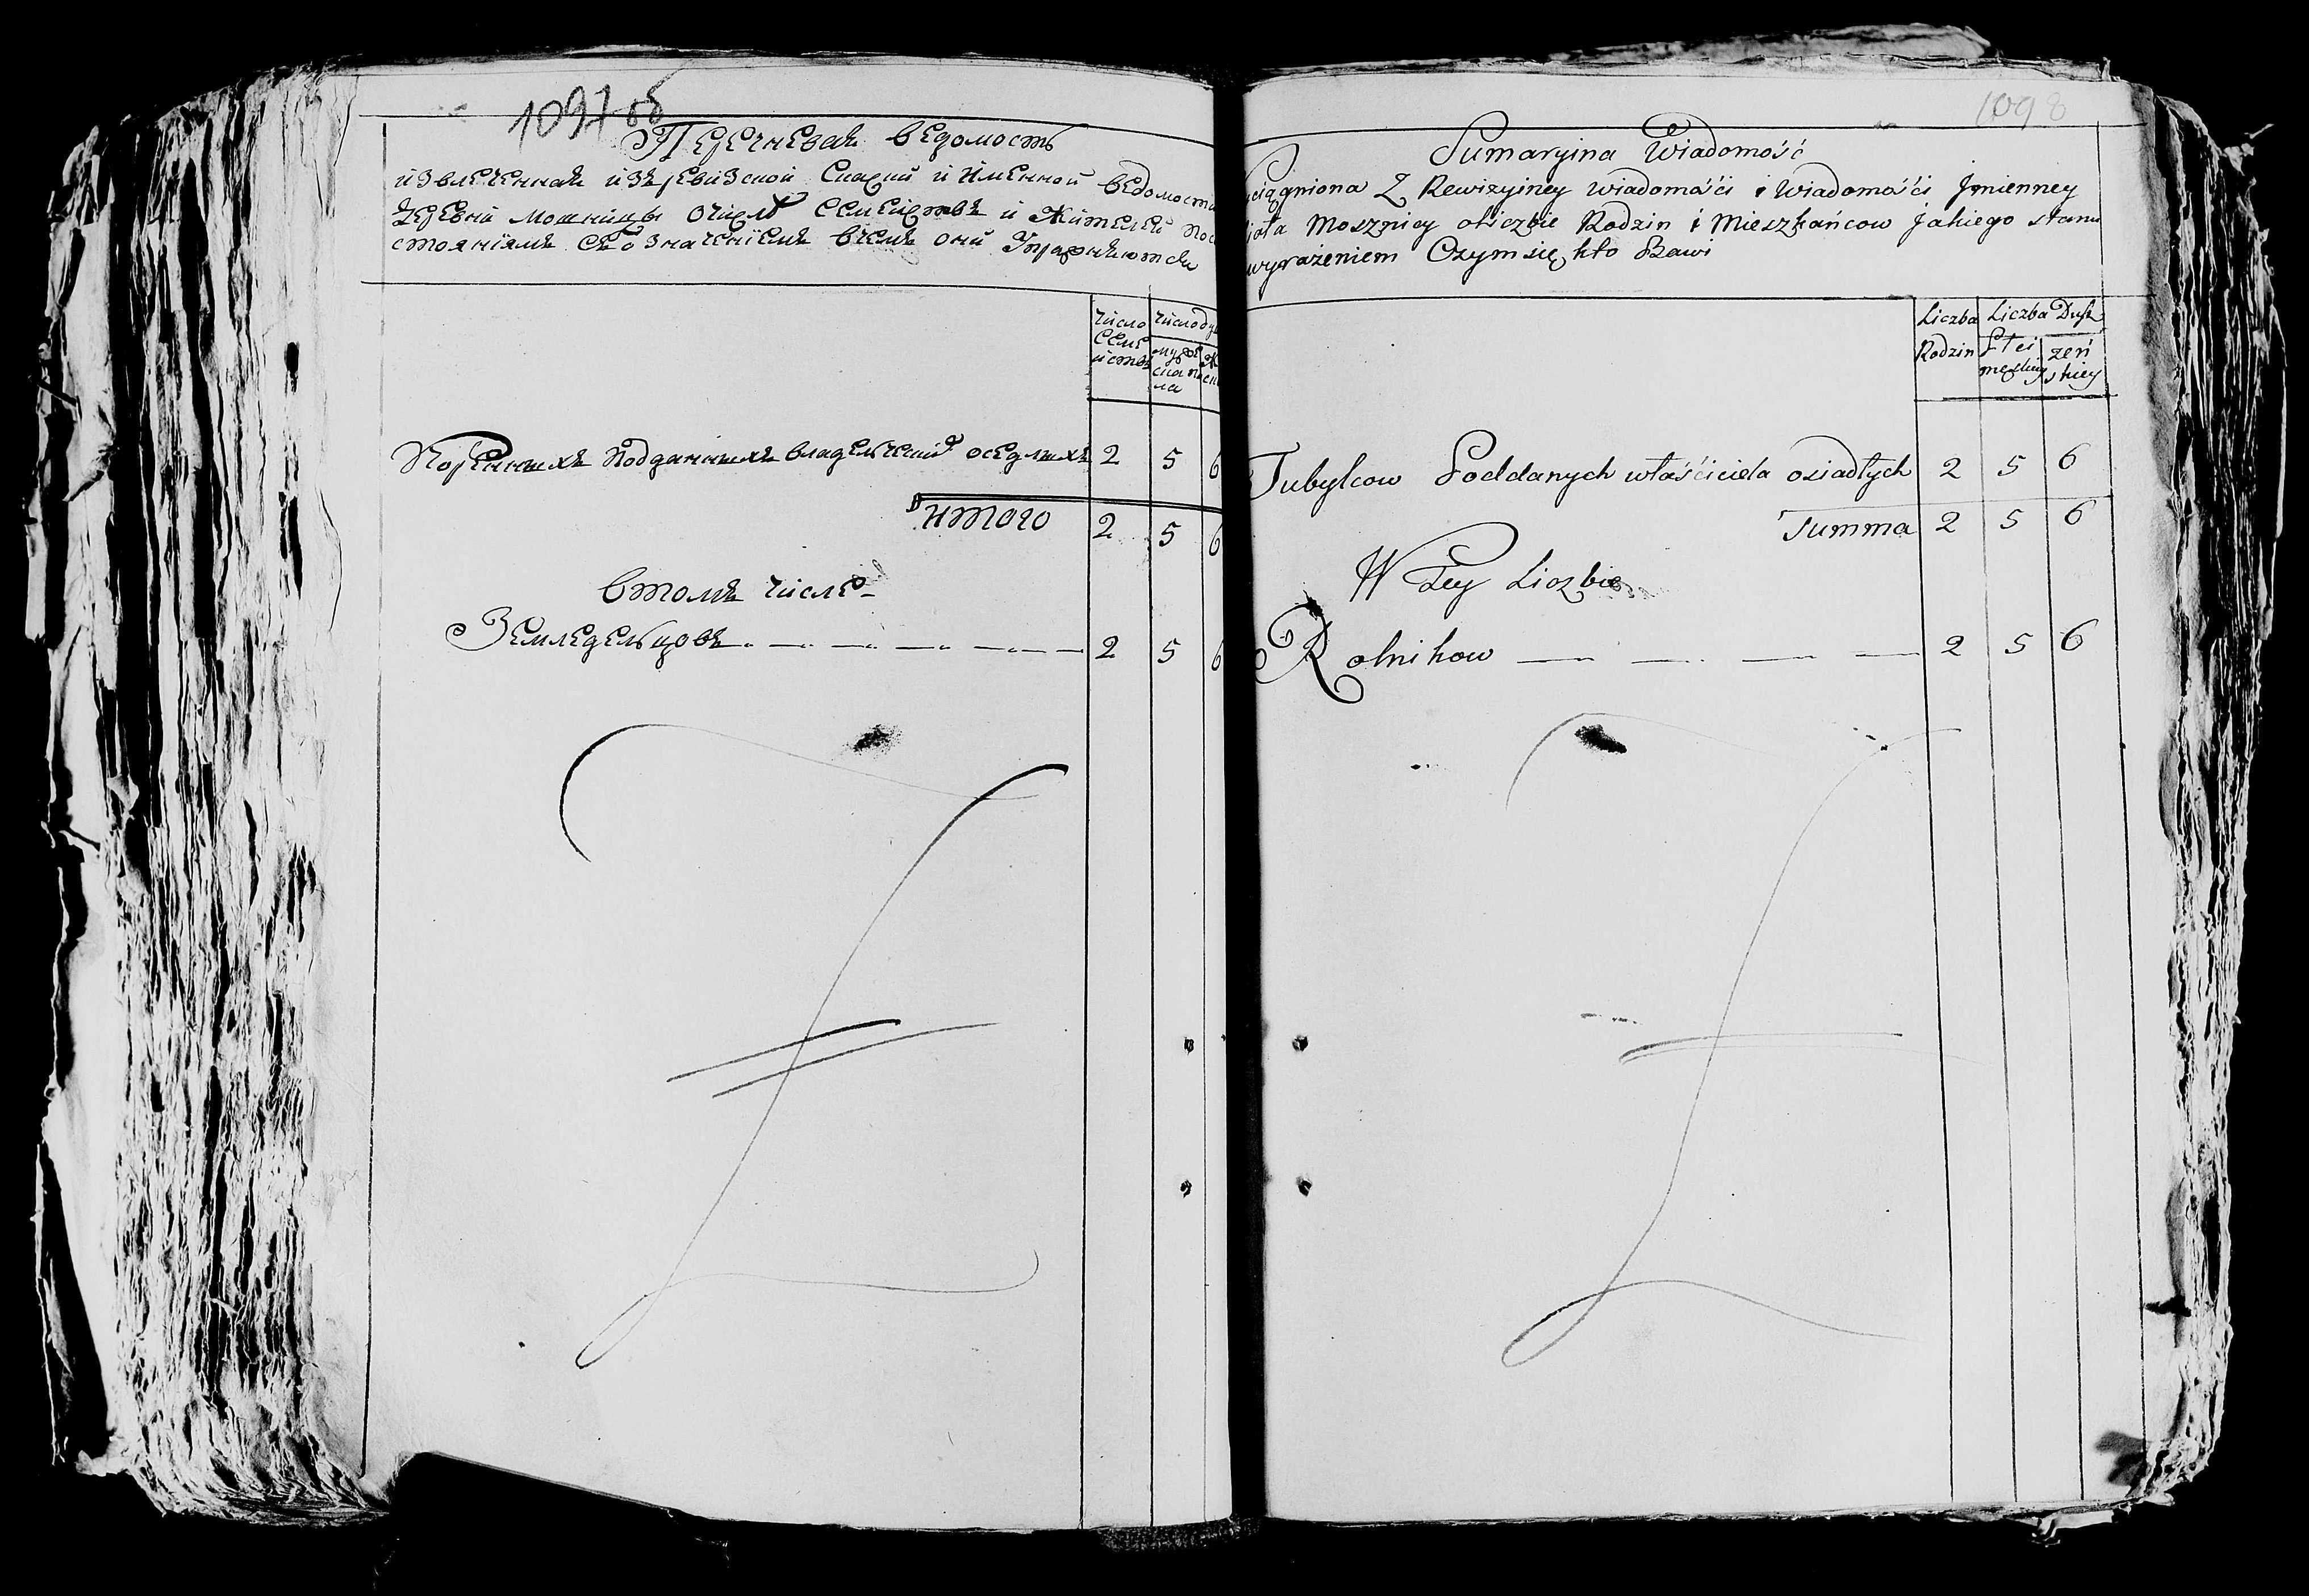 1097 об
Перечневая ведомость
извлеченная изъ ревизской сказки и именной ведомости
деревни Мошницы о числѣ семействъ и жителей по со
стояниямъ съ означениемъ вчемъ они упражняются
число семействъ
число ду
мужеска пола
Коренныхъ подданныхъ владельческихъ оседлыхъ 2 5 6
Итого 2 5 6
втомъ числе
Земледельцовъ 2 5 6
1098
Sumaryina Wiadomość
ciągniona Z Rewizyiney wiadomości i Wiadomości Jmienney
Mosznicy o liczbie Rodzin i Mieszkańcow jakiego stanu
wyrażeniem Czym się kto Bawi
Liczba Rodzin
Liczba Dusz
Płci męskiey
żeńskiey
Tubylcow Poddanych właściciela osiadłych 2 5 6
Summa 2 5 6
W Tey Liczbie
Rolnikow 2 5 6